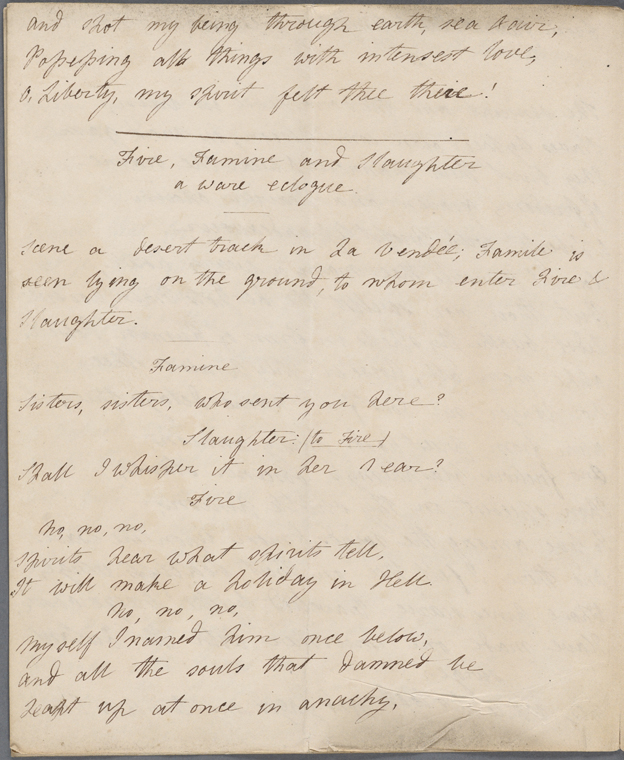 and shot my being through earth, sea & air,
Possessing all things with intensest love,
O, Liberty, my spirit felt thee there!
Fire, Famine and Slaughter
a ware eclogue.
Scene a desert track in La Vendée; Famile is
seen lying on the ground, to whom enter Fire &
Slaughter.
Famine
Sisters, sisters, who sent you here?
Slaughter: (to Fire)
Shall I whisper it in her ear?
Fire
No, no, no,
Spirits hear what spirits tell,
It will make a holiday in Hell.
No, no, no,
Myself I named him once below,
and all the souls that damned be
Leapt up at once in anachy,